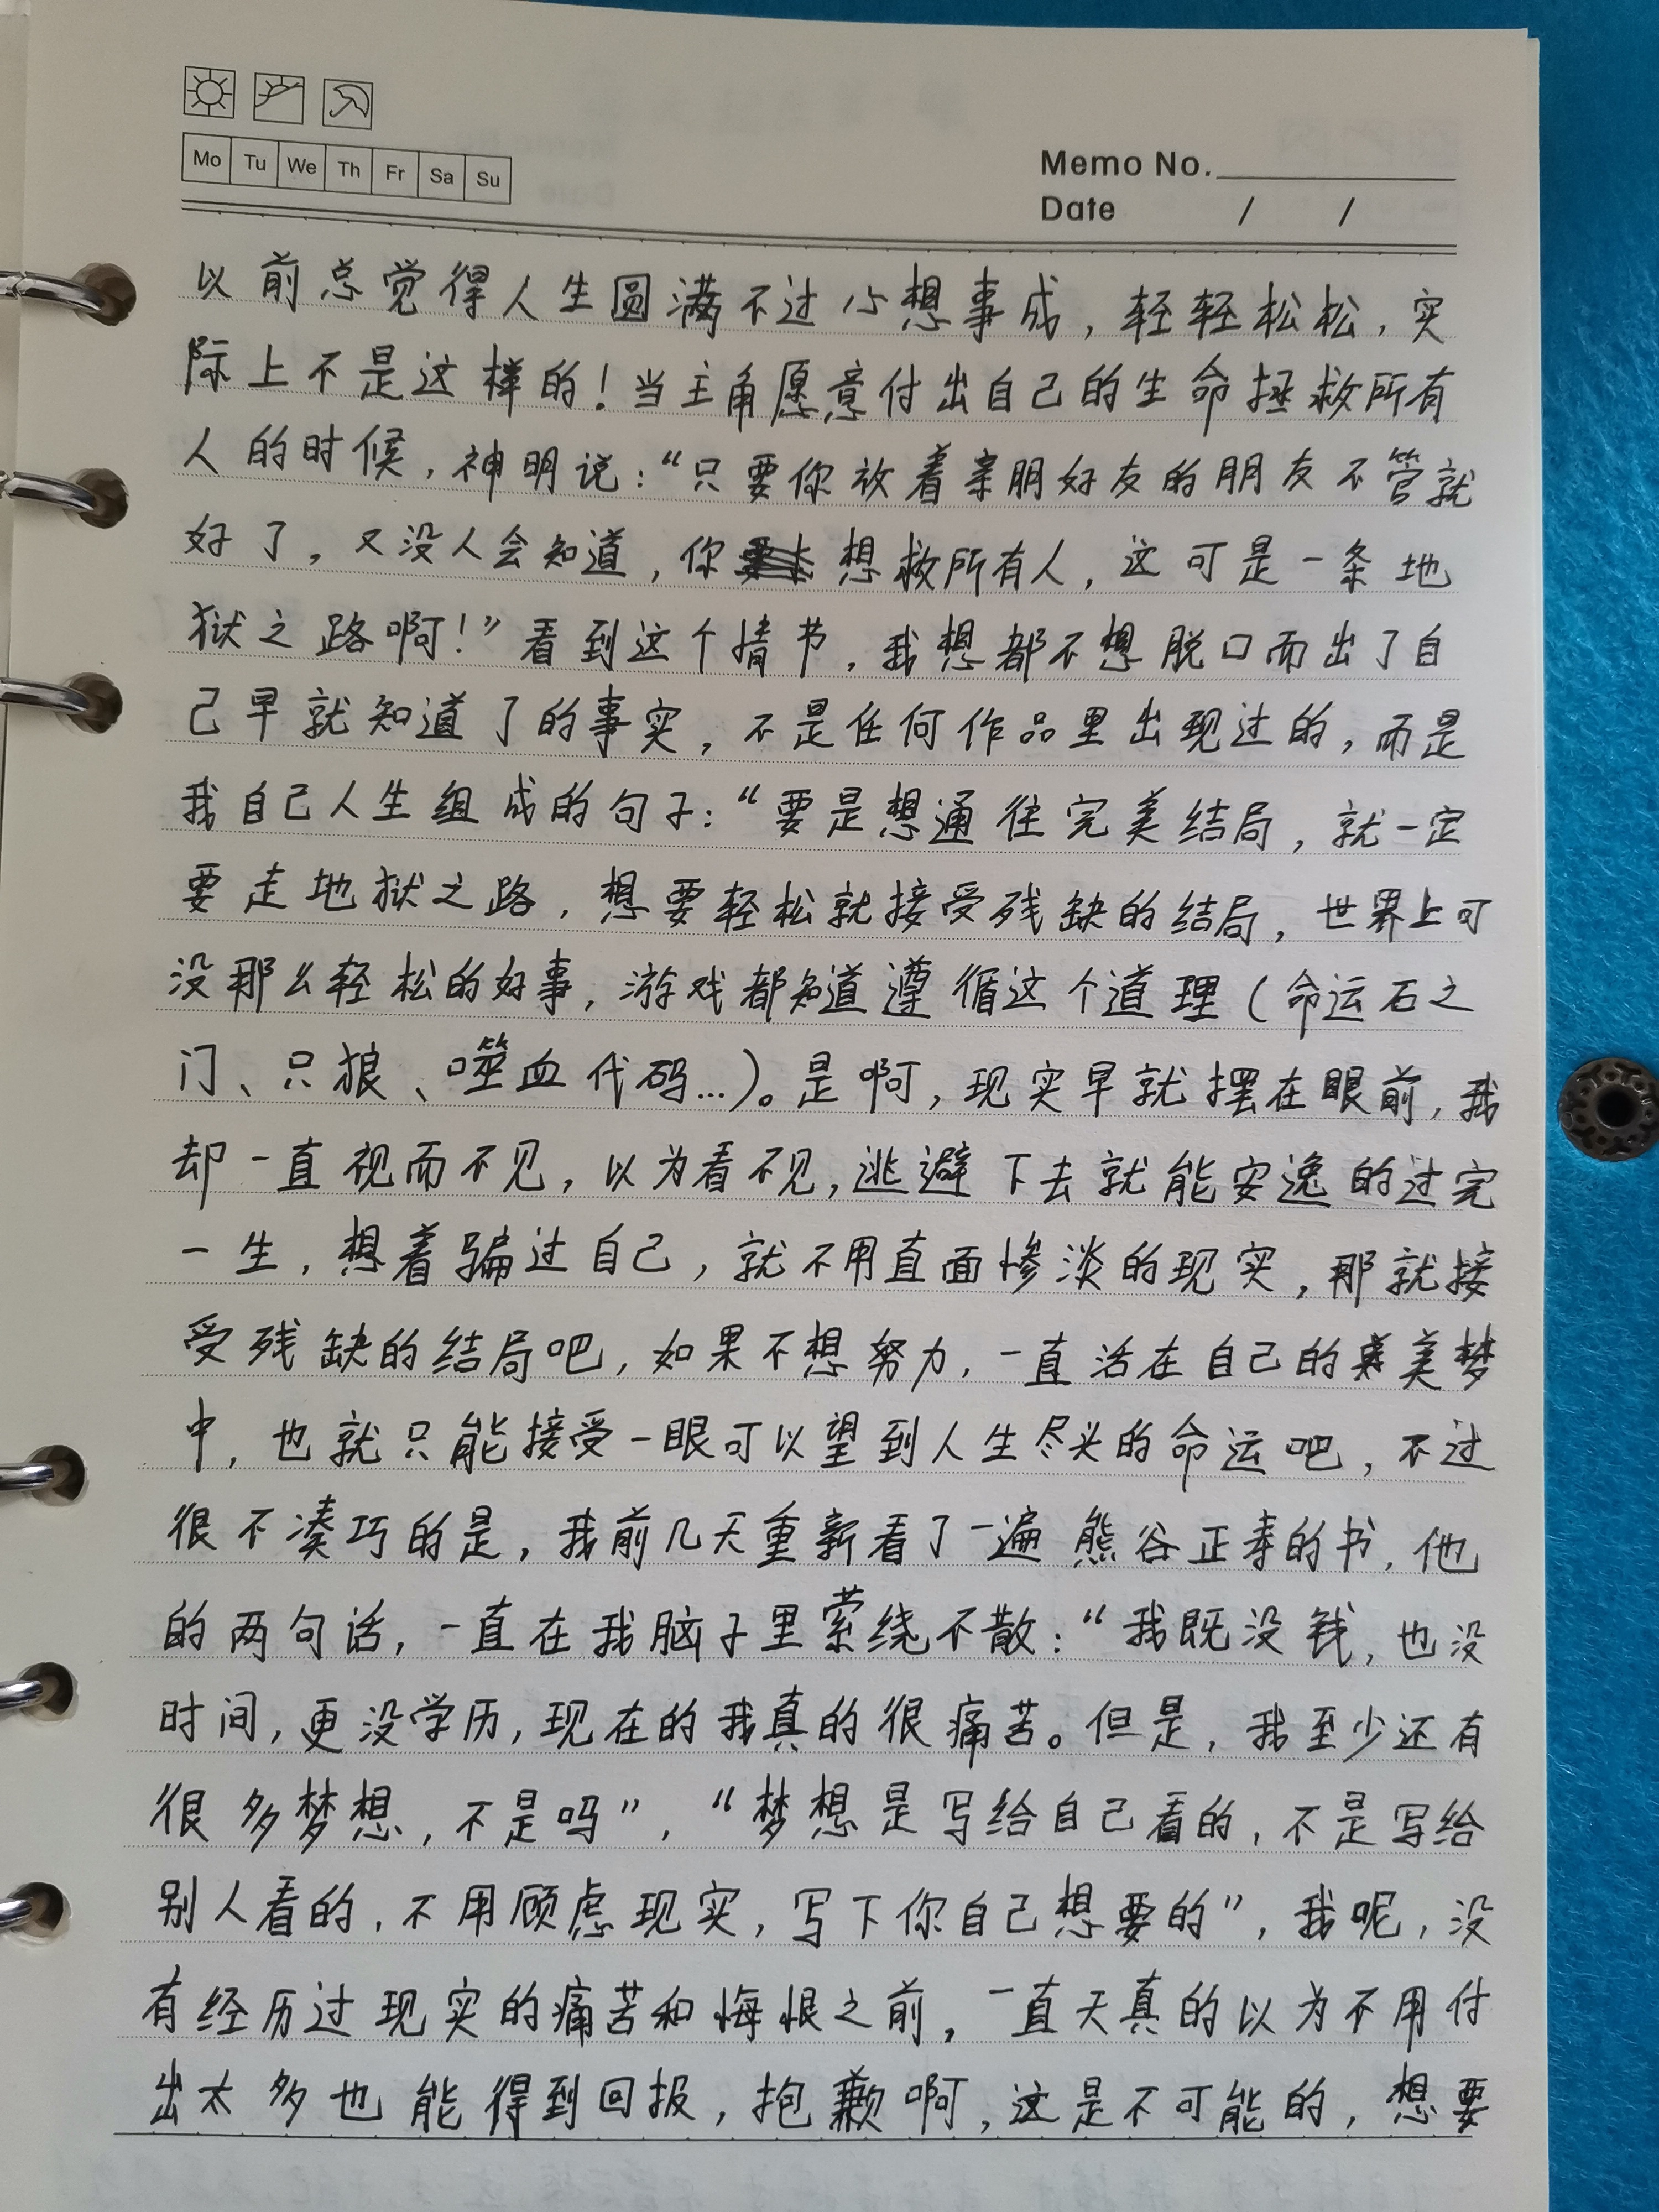 Mo Tu We Th Fr Sa Su
Memo No.
Date / /
以前总觉得人生圆满不过心想事成，轻轻松松，实
际上不是这样的！当主角愿意付出自己的生命拯救所有
人的时候，神明说：“只要你放着亲朋好友的朋友不管就
好了，又没人会知道，你想救所有人，这可是一条地
狱之路啊！”看到这个情节，我想都不想脱口而出了自
己早就知道了的事实，不是任何作品里出现过的，而是
我自己人生组成的句子：“要是想通往完美结局，就一定
要走地狱之路，想要轻松就接受残缺的结局，世界上可
没那么轻松的好事，游戏都知道遵循这个道理（命运石之
门、只狼、噬血代码…）。是啊，现实早就摆在眼前，我
却一直视而不见，以为看不见，逃避下去就能安逸的过完
一生，想着骗过自己，就不用直面惨淡的现实，那就接
受残缺的结局吧，如果不想努力，一直活在自己的美梦
中，也就只能接受一眼可以望到人生尽头的命运吧，不过
很不凑巧的是，我前几天重新看了一遍熊谷正寿的书，他
的两句话，一直在我脑子里萦绕不散：“我既没钱，也没
时间，更没学历，现在的我真的很痛苦。但是，我至少还有
很多梦想，不是吗”，“梦想是写给自己看的，不是写给
别人看的，不用顾虑现实，写下你自己想要的”，我呢，没
有经历过现实的痛苦和悔恨之前，一直天真的以为不用付
出太多也能得到回报，抱歉啊，这是不可能的，想要